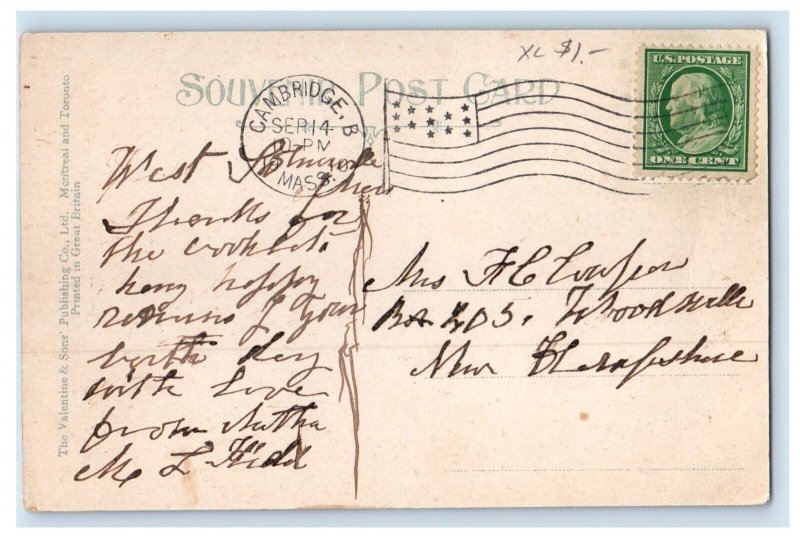 XL $1.-
SOUVENIR POST CARD
U.S. POSTAGE
ONE CENT
CAMBRIDGE, B
SEP 14
-PM
MASS.
The Valentine & Sons' Publishing Co., Ltd. Montreal and Toronto
Printed in Great Britain
West
Thanks for
the booklet.
many happy
returns of your
birth day
with Love
from
M L Kidd
Mrs F C
Box 205. Woodsville
New Hampshire